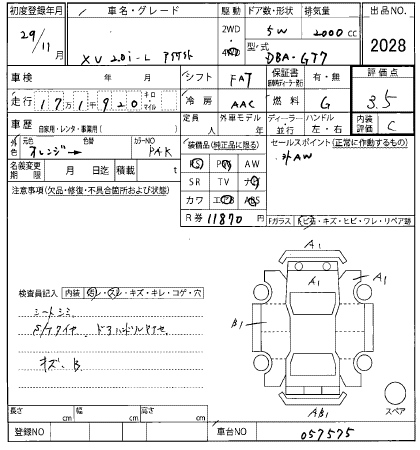 初度登録年月 車名・グレード 駆動 ドア数・形状 排気量 出品NO.
29/11月 XV 2.0i-L アイサイト 2WD 4WD 5W 2000cc 2028
型/式 DBA-GT7
車検 年 月 シフト FAT 保証書 有・無 評価点
走行 キロ・マイル 冷房 AAC 燃料 G 3.5
車歴 自家用・レンタ・事業用( ) 定員 人 外車モデル 年 ディーラー・並行 ハンドル 左・右 内装評価 C
外色 元色 オレンジ 色替 カラーNO PAK 装備品(純正品に限る) セールスポイント(正常に作動するもの)
PS PW AW 外AW
名義変更期限 月 日迄 積載 t SR TV ナビ
注意事項(欠品・修復・不具合箇所および状態) カワ エアB ABS
R券 11870 円 Fガラス トビ石・キズ・ヒビ・ワレ・リペア跡
A1
A1 A1
検査員記入 内装 汚レ・スレ・キズ・キレ・コゲ・穴
B1
シートシミ
キズ、B
スペア
AB1
長さ cm 幅 cm 高さ cm
登録NO 車台NO 057575